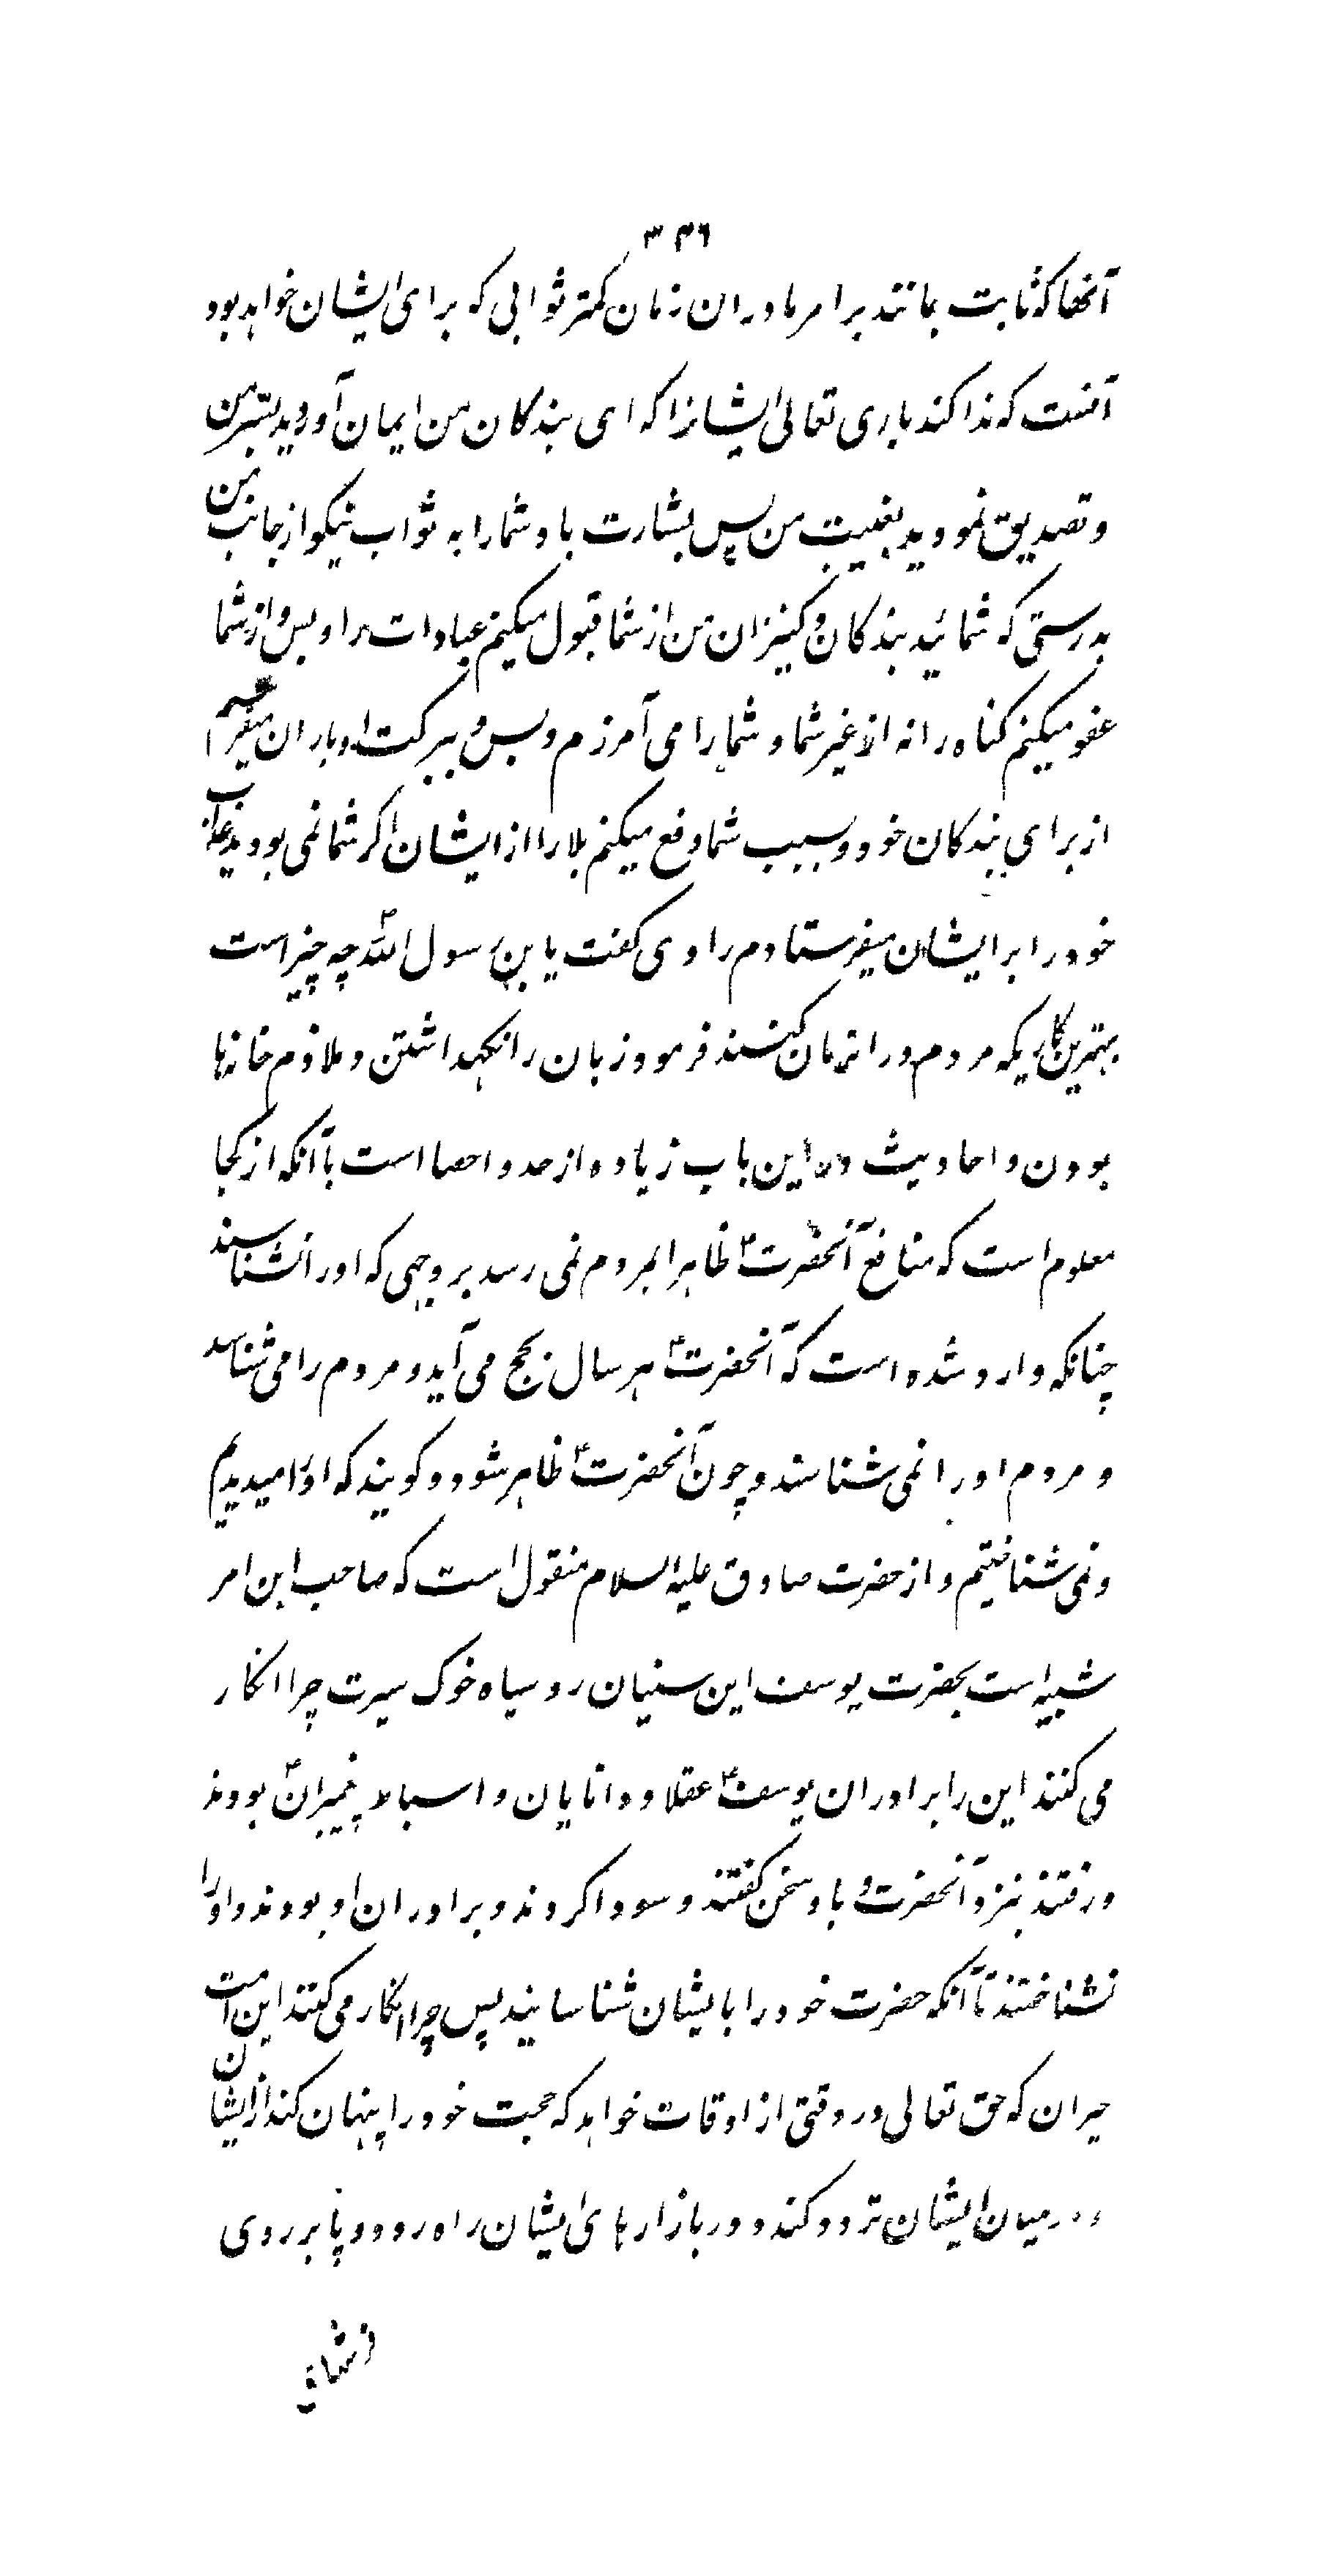 ۳۴۶
آنها که ثابت بمانند بر امر ما در ان زمان کمتر ثوابی که برای ایشان خواهد بود
آنست که ندا کند باری تعالی ایشانرا که ای بندکان من ایمان آوردید بسر من
و تصدیق نمودید بغیبت من پس بشارت باد شما را به ثواب نیکو از جانب من
بدرستی که شمائید بندکان و کنیزان من از شما قبول میکنم عبادات را و بس و از شما
عفو میکنم کناه را نه از غیر شما و شما را می آمرزم و بس و ببرکت شما باران میفرستم
از برای بندکان خود و بسبب شما دفع میکنم بلا را از ایشان اکر شما نمی بودید عذاب
خود را بر ایشان میفرستادم راوی کفت یا بن رسول الله ص چه چیز است
بهترین کاریکه مردم در انزمان کنند فرمود زبان را نکهداشتن و ملازم خانها
بودن و احادیث در این باب زیاده از حد و احصا است با آنکه از کجا
معلوم است که منافع آنحضرت ع ظاهرا بمردم نمی رسد بر وجهی که او را نشناسند
چنانکه وارد شده است که آنحضرت ع هر سال بحج می آید و مردم را می شناسد
و مردم او را نمی شناسند و چون آنحضرت ع ظاهر شود و کویند که او را میدیدیم
و نمی شناختیم و از حضرت صادق علیه السلام منقول است که صاحب این امر
شبیه است بحضرت یوسف این سنیان رو سیاه خوک سیرت چرا انکار
می کنند این را برادران یوسف ع عقلا و دانایان و اسباط پیغمبران ع بودند
و رفتند بنزد آنحضرت و با و سخن کفتند و سودا کردند و برادران او بودند و او را
نشناختند تا آنکه حضرت خود را بایشان شناسانید پس چرا انکار می کنند این امت
حیران که حق تعالی در وقتی از اوقات خواهد که حجت خود را پنهان کند از ایشان
و در میان ایشان تردد کند و در بازارهای ایشان راه رود و پا بر روی